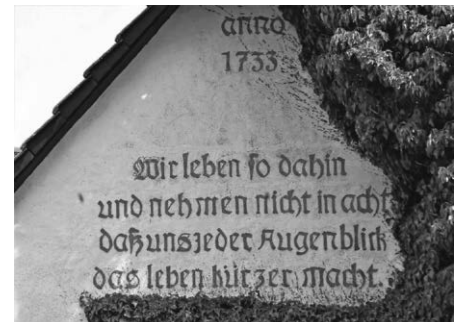 anno
1733
Wir leben so dahin
und nehmen nicht in acht
daß uns jeder Augenblick
das leben kürzer macht.